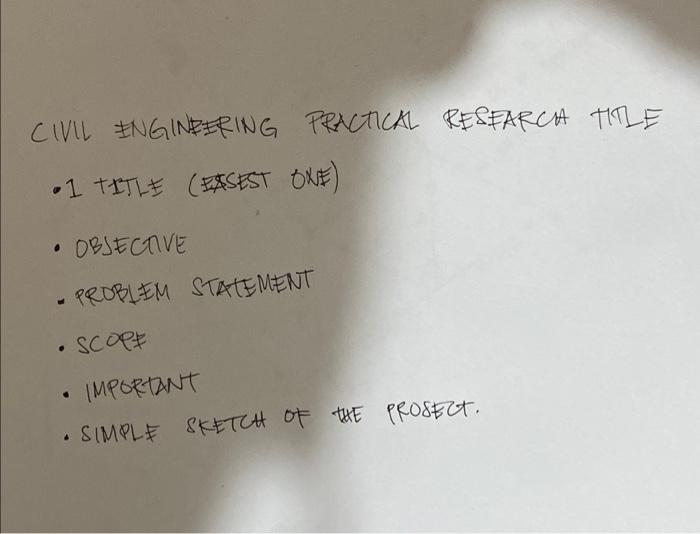 CIVIL ENGINEERING PRACTICAL RESEARCH TITLE
• 1 TITLE (EASEST ONE)
• OBJECTIVE
• PROBLEM STATEMENT
• SCOPE
• IMPORTANT
• SIMPLE SKETCH OF THE PROJECT.